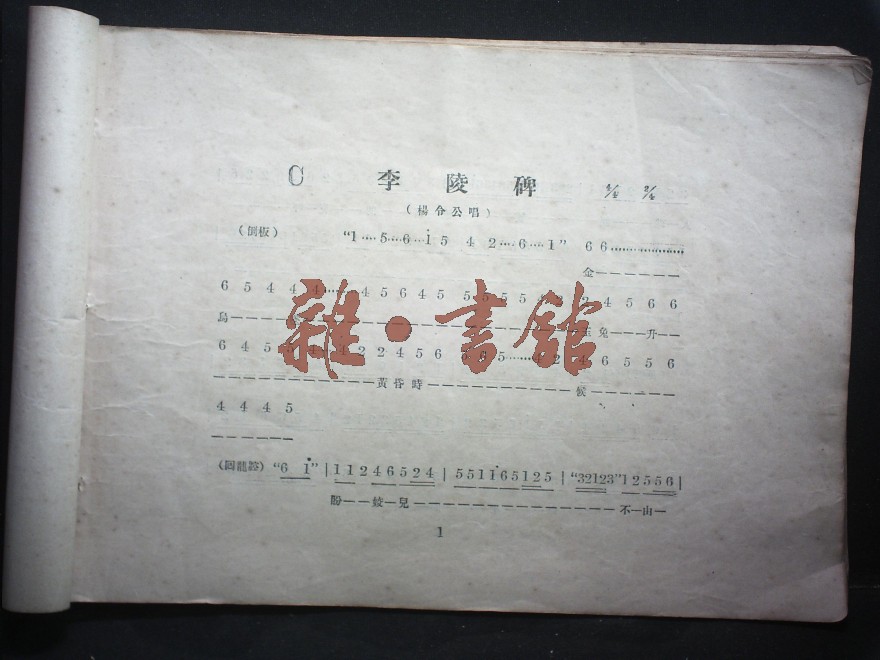 C 李陵碑 2/4 2/4
（楊令公唱）
（倒板） “1····5···6···1 5 4 2····6····1” 6 6····················
金——————
6 5 4 4 4 4 5 6 4 5 5 5 5 5 4 5 6 6
烏—— 兔——升——
雜·書館
6 4 5 2 2 4 5 6 5······4 2 4 6 5 5 6
———————黃昏時——————候————
4 4 4 5
——————
（回龍腔） “6 1” | 1 1 2 4 6 5 2 4 | 5 5 1 1 6 5 1 2 5 | “3 2 1 2 3” 1 2 5 5 6 |
盼——姣—兒——————————————不—由—
1